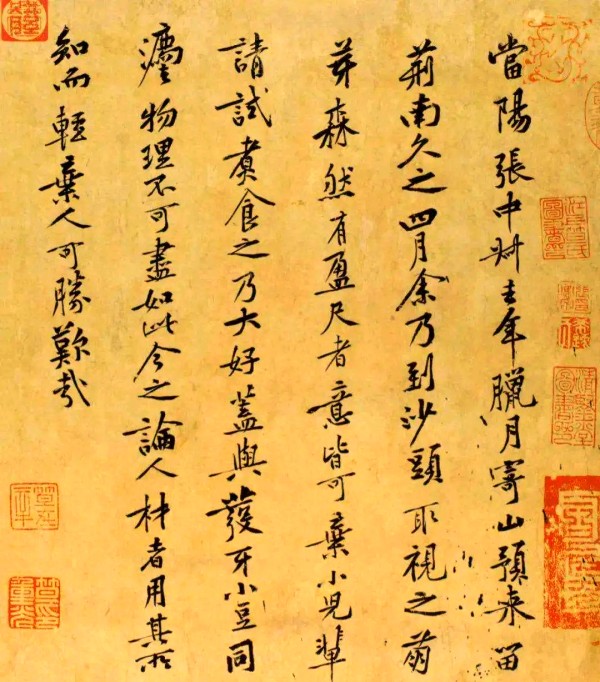 當陽張中叔去年臘月寄山預来留
荊南久之四月余乃到沙頭取視之萌
芽森然有盈尺者意皆可棄小兒輩
請試煮食之乃大好蓋與發牙小豆同
㵗物理不可盡如此今之論人材者用其所
知而輕棄人可勝歎哉